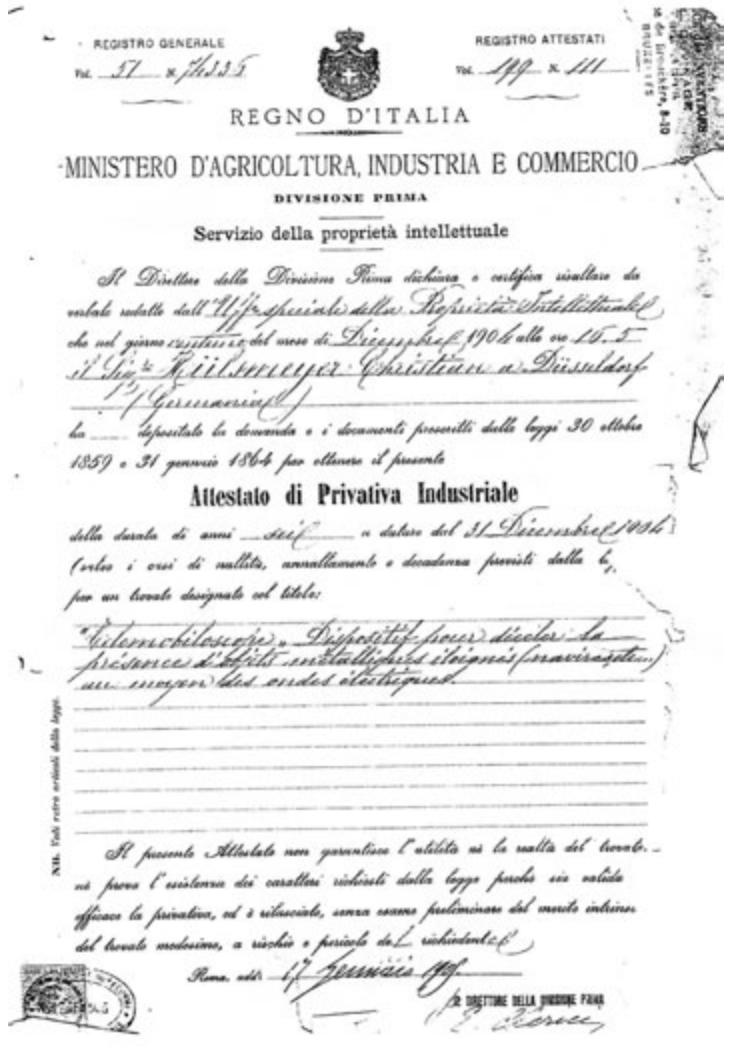 REGISTRO GENERALE
Vol. 51 N. 74335
REGISTRO ATTESTATI
Vol. 199 N. 111
BRUXELLES
REGNO D'ITALIA
MINISTERO D'AGRICOLTURA, INDUSTRIA E COMMERCIO
DIVISIONE PRIMA
Servizio della proprietà intellettuale
Il Direttore della Divisione Prima dichiara e certifica risultare da
verbale redatto dall'Uff. speciale della Proprietà Intellettuale
che nel giorno ventuno del mese di Dicembre 1904 alle ore 16.5
il Sig.re Hülsmeyer Christian a Düsseldorf
(Germania)
ha depositato la domanda e i documenti prescritti dalle leggi 30 ottobre
1859 e 31 gennaio 1864 per ottenere il presente
Attestato di Privativa Industriale
della durata di anni sei a datare dal 31 Dicembre 1904
(salvo i casi di nullità, annullamento e decadenza previsti dalla
per un trovato designato col titolo:
"Telemobiloscope" Dispositif pour déceler la
présence d'objets métalliques éloignés (navires etc.)
au moyen des ondes électriques.
NB. Vedi retro articoli della legge.
Il presente Attestato non garantisce l'utilità nè la realtà del trovato
nè prova l'esistenza dei caratteri richiesti dalla legge perchè sia valida
efficace la privativa, ed è rilasciato, senza esame preliminare del merito intrinse
del trovato medesimo, a rischio e pericolo del richiedente
Roma, addì 17 Gennaio 1905
IL DIRETTORE DELLA DIVISIONE PRIMA